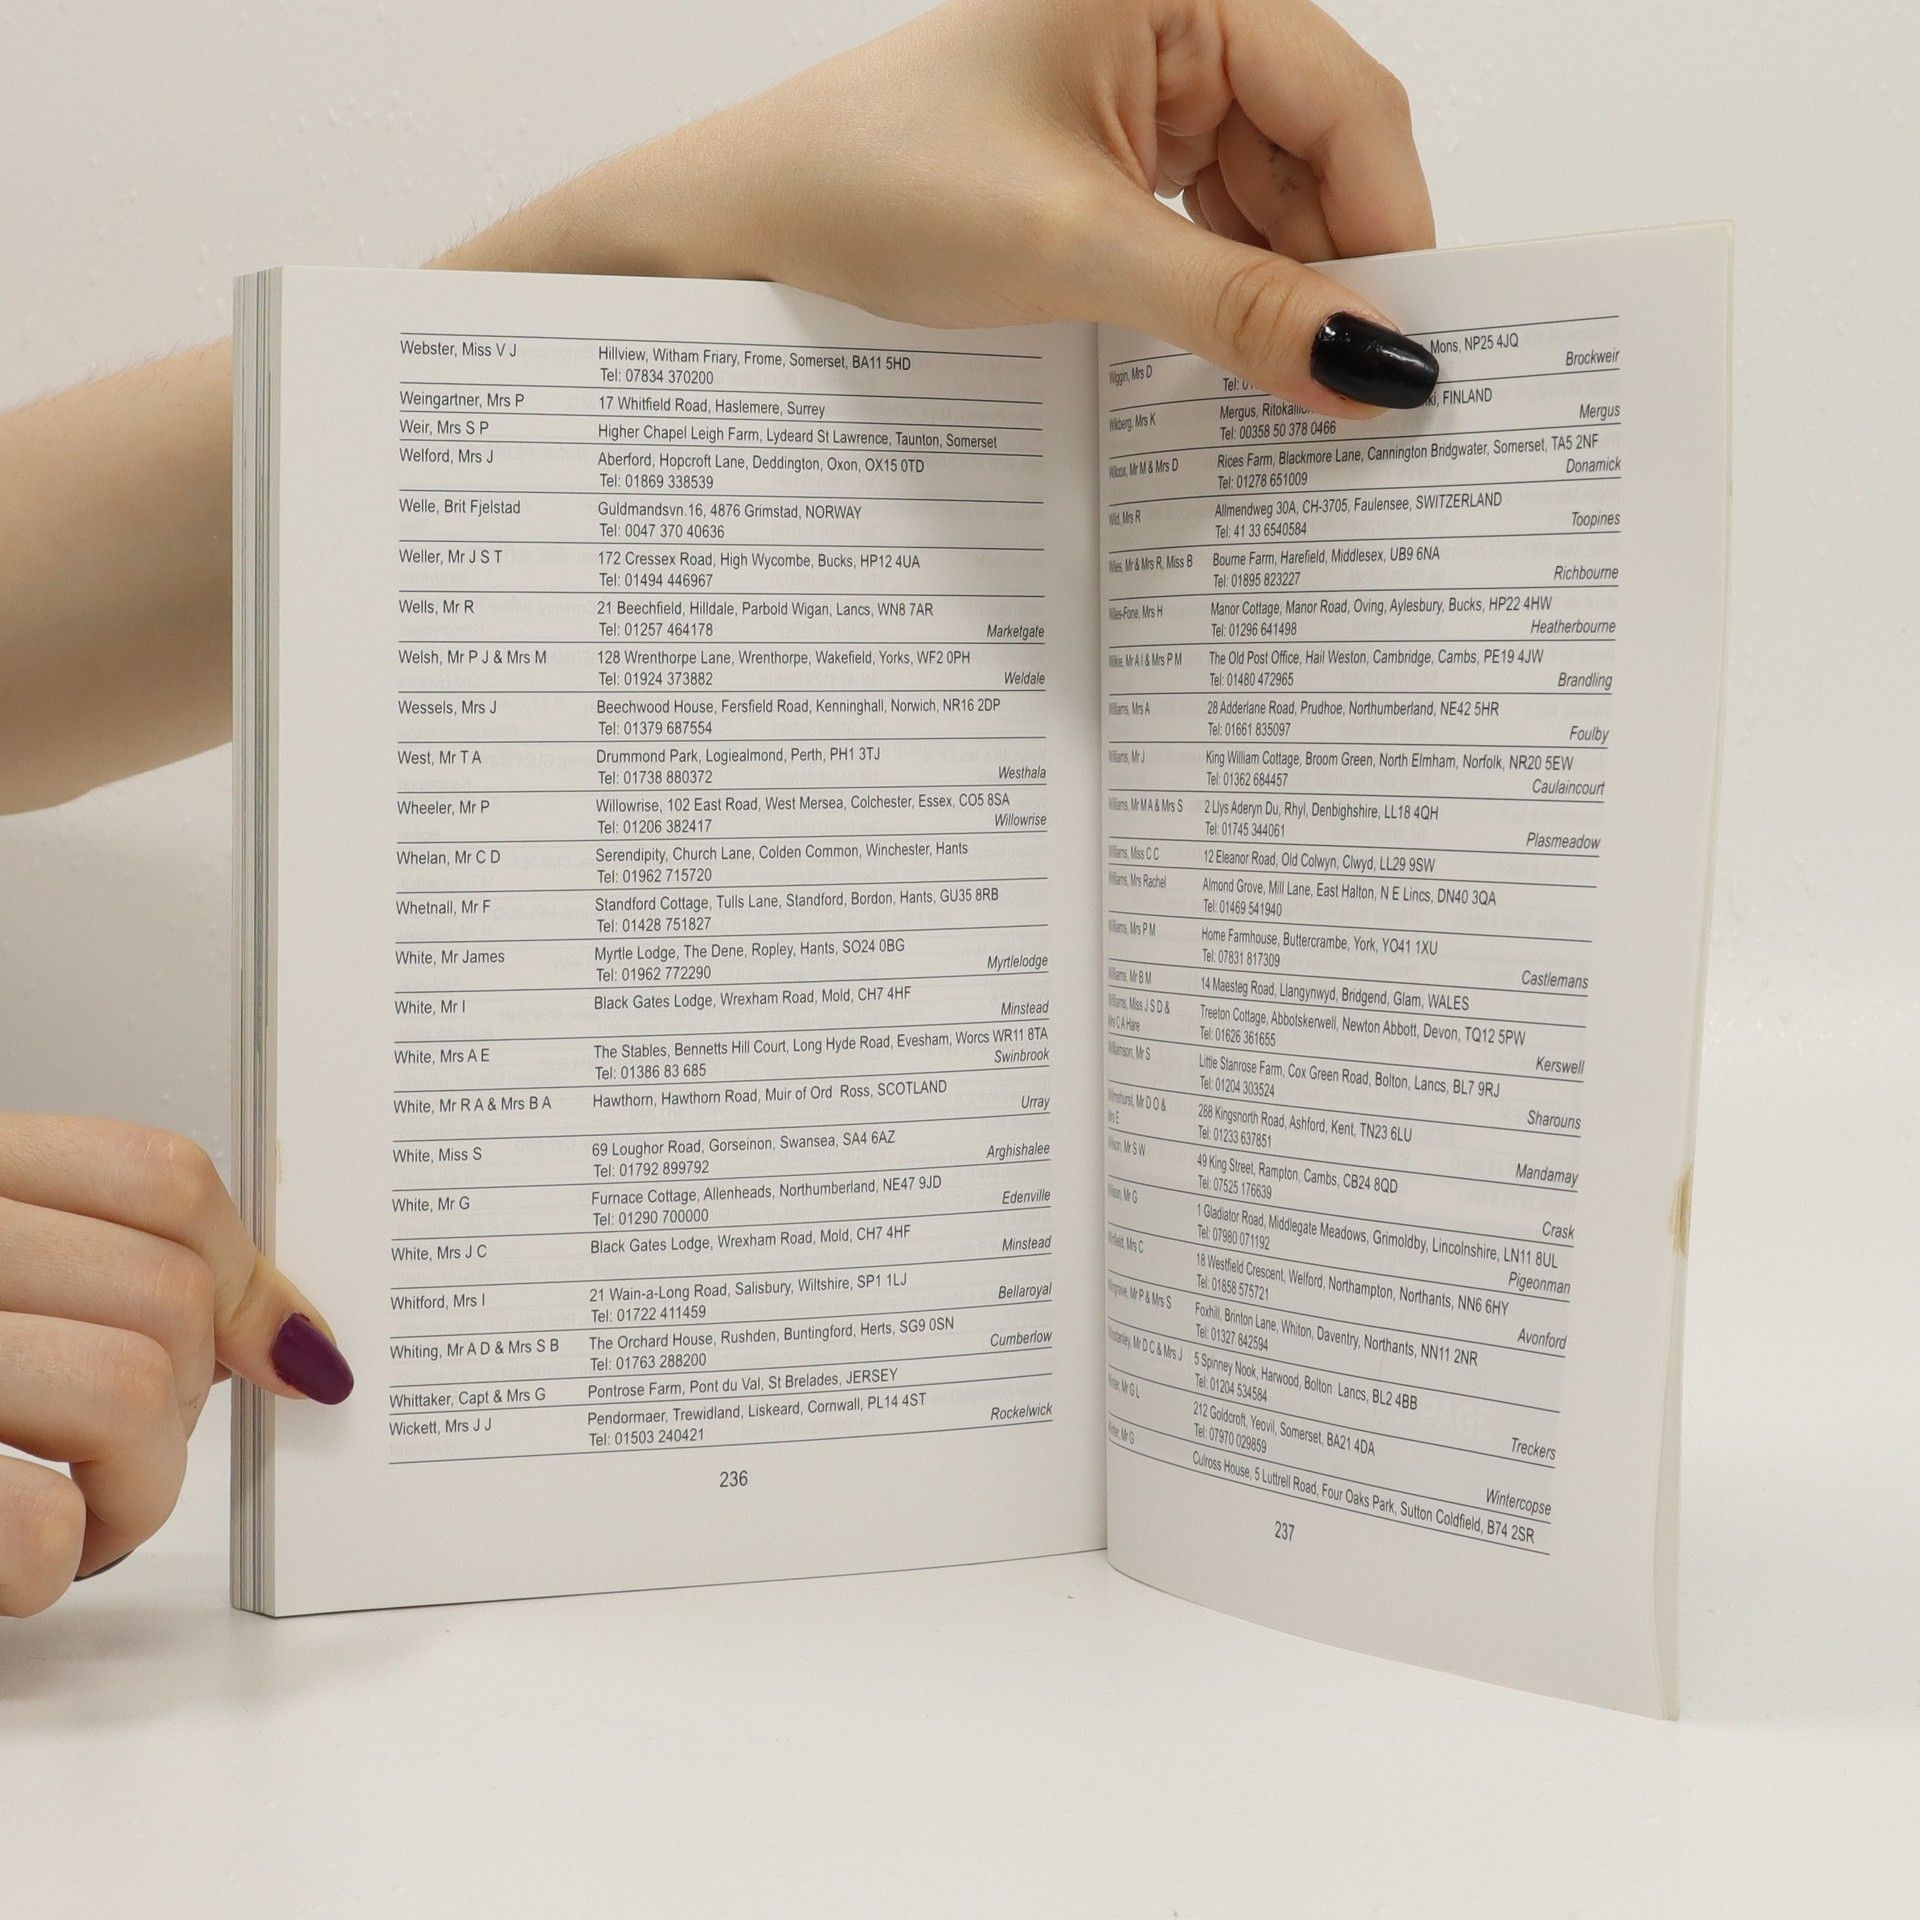 Webster, Miss V J Hillview, Witham Friary, Frome, Somerset, BA11 5HD
Tel: 07834 370200
Weingartner, Mrs P 17 Whitfield Road, Haslemere, Surrey
Weir, Mrs S P Higher Chapel Leigh Farm, Lydeard St Lawrence, Taunton, Somerset
Welford, Mrs J Aberford, Hopcroft Lane, Deddington, Oxon, OX15 0TD
Tel: 01869 338539
Welle, Brit Fjelstad Guldmandsvn.16, 4876 Grimstad, NORWAY
Tel: 0047 370 40636
Weller, Mr J S T 172 Cressex Road, High Wycombe, Bucks, HP12 4UA
Tel: 01494 446967
Wells, Mr R 21 Beechfield, Hilldale, Parbold Wigan, Lancs, WN8 7AR
Tel: 01257 464178 Marketgate
Welsh, Mr P J & Mrs M 128 Wrenthorpe Lane, Wrenthorpe, Wakefield, Yorks, WF2 0PH
Tel: 01924 373882 Weldale
Wessels, Mrs J Beechwood House, Fersfield Road, Kenninghall, Norwich, NR16 2DP
Tel: 01379 687554
West, Mr T A Drummond Park, Logiealmond, Perth, PH1 3TJ
Tel: 01738 880372 Westhala
Wheeler, Mr P Willowrise, 102 East Road, West Mersea, Colchester, Essex, CO5 8SA
Tel: 01206 382417 Willowrise
Whelan, Mr C D Serendipity, Church Lane, Colden Common, Winchester, Hants
Tel: 01962 715720
Whetnall, Mr F Standford Cottage, Tulls Lane, Standford, Bordon, Hants, GU35 8RB
Tel: 01428 751827
White, Mr James Myrtle Lodge, The Dene, Ropley, Hants, SO24 0BG
Tel: 01962 772290 Myrtlelodge
White, Mr I Black Gates Lodge, Wrexham Road, Mold, CH7 4HF
Minstead
White, Mrs A E The Stables, Bennetts Hill Court, Long Hyde Road, Evesham, Worcs WR11 8TA
Tel: 01386 83 685 Swinbrook
White, Mr R A & Mrs B A Hawthorn, Hawthorn Road, Muir of Ord Ross, SCOTLAND
Urray
White, Miss S 69 Loughor Road, Gorseinon, Swansea, SA4 6AZ
Tel: 01792 899792 Arghishalee
White, Mr G Furnace Cottage, Allenheads, Northumberland, NE47 9JD
Tel: 01290 700000 Edenville
White, Mrs J C Black Gates Lodge, Wrexham Road, Mold, CH7 4HF
Minstead
Whitford, Mrs I 21 Wain-a-Long Road, Salisbury, Wiltshire, SP1 1LJ
Tel: 01722 411459 Bellaroyal
Whiting, Mr A D & Mrs S B The Orchard House, Rushden, Buntingford, Herts, SG9 0SN
Tel: 01763 288200 Cumberlow
Whittaker, Capt & Mrs G Pontrose Farm, Pont du Val, St Brelades, JERSEY
Wickett, Mrs J J Pendormaer, Trewidland, Liskeard, Cornwall, PL14 4ST
Tel: 01503 240421 Rockelwick
236
Wiggin, Mrs D Mons, NP25 4JQ
Tel: Brockweir
Wikberg, Mrs K Mergus, FINLAND
Tel: 00358 50 378 0466 Mergus
Wilcox, Mr M & Mrs D Rices Farm, Blackmore Lane, Cannington Bridgwater, Somerset, TA5 2NF
Tel: 01278 651009 Donamick
Wild, Mrs R Allmendweg 30A, CH-3705, Faulensee, SWITZERLAND
Tel: 41 33 6540584 Toopines
Wiles, Mr & Mrs R, Miss B Bourne Farm, Harefield, Middlesex, UB9 6NA
Tel: 01895 823227 Richbourne
Wiles-Fone, Mrs H Manor Cottage, Manor Road, Oving, Aylesbury, Bucks, HP22 4HW
Tel: 01296 641498 Heatherbourne
Wilkie, Mr A I & Mrs P M The Old Post Office, Hail Weston, Cambridge, Cambs, PE19 4JW
Tel: 01480 472965 Brandling
Williams, Mrs A 28 Adderlane Road, Prudhoe, Northumberland, NE42 5HR
Tel: 01661 835097 Foulby
Williams, Mr J King William Cottage, Broom Green, North Elmham, Norfolk, NR20 5EW
Tel: 01362 684457 Caulaincourt
Williams, Mr M A & Mrs S 2 Llys Aderyn Du, Rhyl, Denbighshire, LL18 4QH
Tel: 01745 344061 Plasmeadow
Williams, Miss C C 12 Eleanor Road, Old Colwyn, Clwyd, LL29 9SW
Williams, Mrs Rachel Almond Grove, Mill Lane, East Halton, N E Lincs, DN40 3QA
Tel: 01469 541940
Williams, Mrs P M Home Farmhouse, Buttercrambe, York, YO41 1XU
Tel: 07831 817309 Castlemans
Williams, Mr B M 14 Maesteg Road, Llangynwyd, Bridgend, Glam, WALES
Williams, Miss J S D & Treeton Cottage, Abbotskerwell, Newton Abbott, Devon, TQ12 5PW
Mrs C A Hare Tel: 01626 361655 Kerswell
Williamson, Mr S Little Stanrose Farm, Cox Green Road, Bolton, Lancs, BL7 9RJ
Tel: 01204 303524 Sharouns
Wilmshurst, Mr D O & 288 Kingsnorth Road, Ashford, Kent, TN23 6LU
Mrs E Tel: 01233 637851 Mandamay
Wilson, Mr S W 49 King Street, Rampton, Cambs, CB24 8QD
Tel: 07525 176639 Crask
Wilson, Mr G 1 Gladiator Road, Middlegate Meadows, Grimoldby, Lincolnshire, LN11 8UL
Tel: 07980 071192 Pigeonman
Winfield, Mrs C 18 Westfield Crescent, Welford, Northampton, Northants, NN6 6HY
Tel: 01858 575721 Avonford
Wingrave, Mr P & Mrs S Foxhill, Brinton Lane, Whiton, Daventry, Northants, NN11 2NR
Tel: 01327 842594
Winstanley, Mr D C & Mrs J 5 Spinney Nook, Harwood, Bolton Lancs, BL2 4BB
Tel: 01204 534584 Treckers
Winter, Mr G L 212 Goldcroft, Yeovil, Somerset, BA21 4DA
Tel: 07970 029859 Wintercopse
Winter, Mr G Culross House, 5 Luttrell Road, Four Oaks Park, Sutton Coldfield, B74 2SR
237